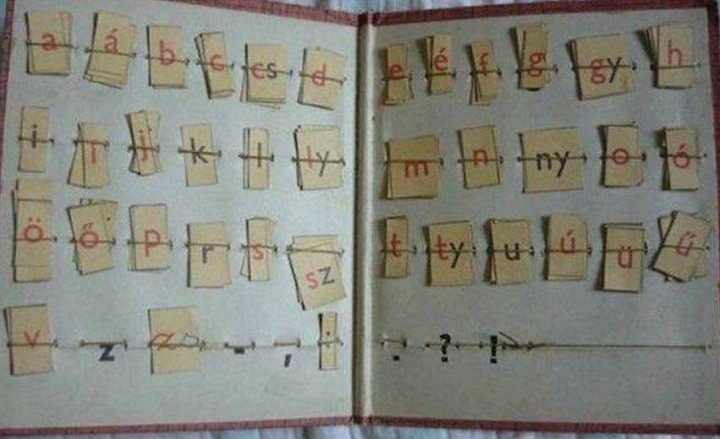 a á b c cs d e é f g gy h
i í j k l ly m n ny o ó
ö ő p r s sz t ty u ú ü ű
v z - , . ? !